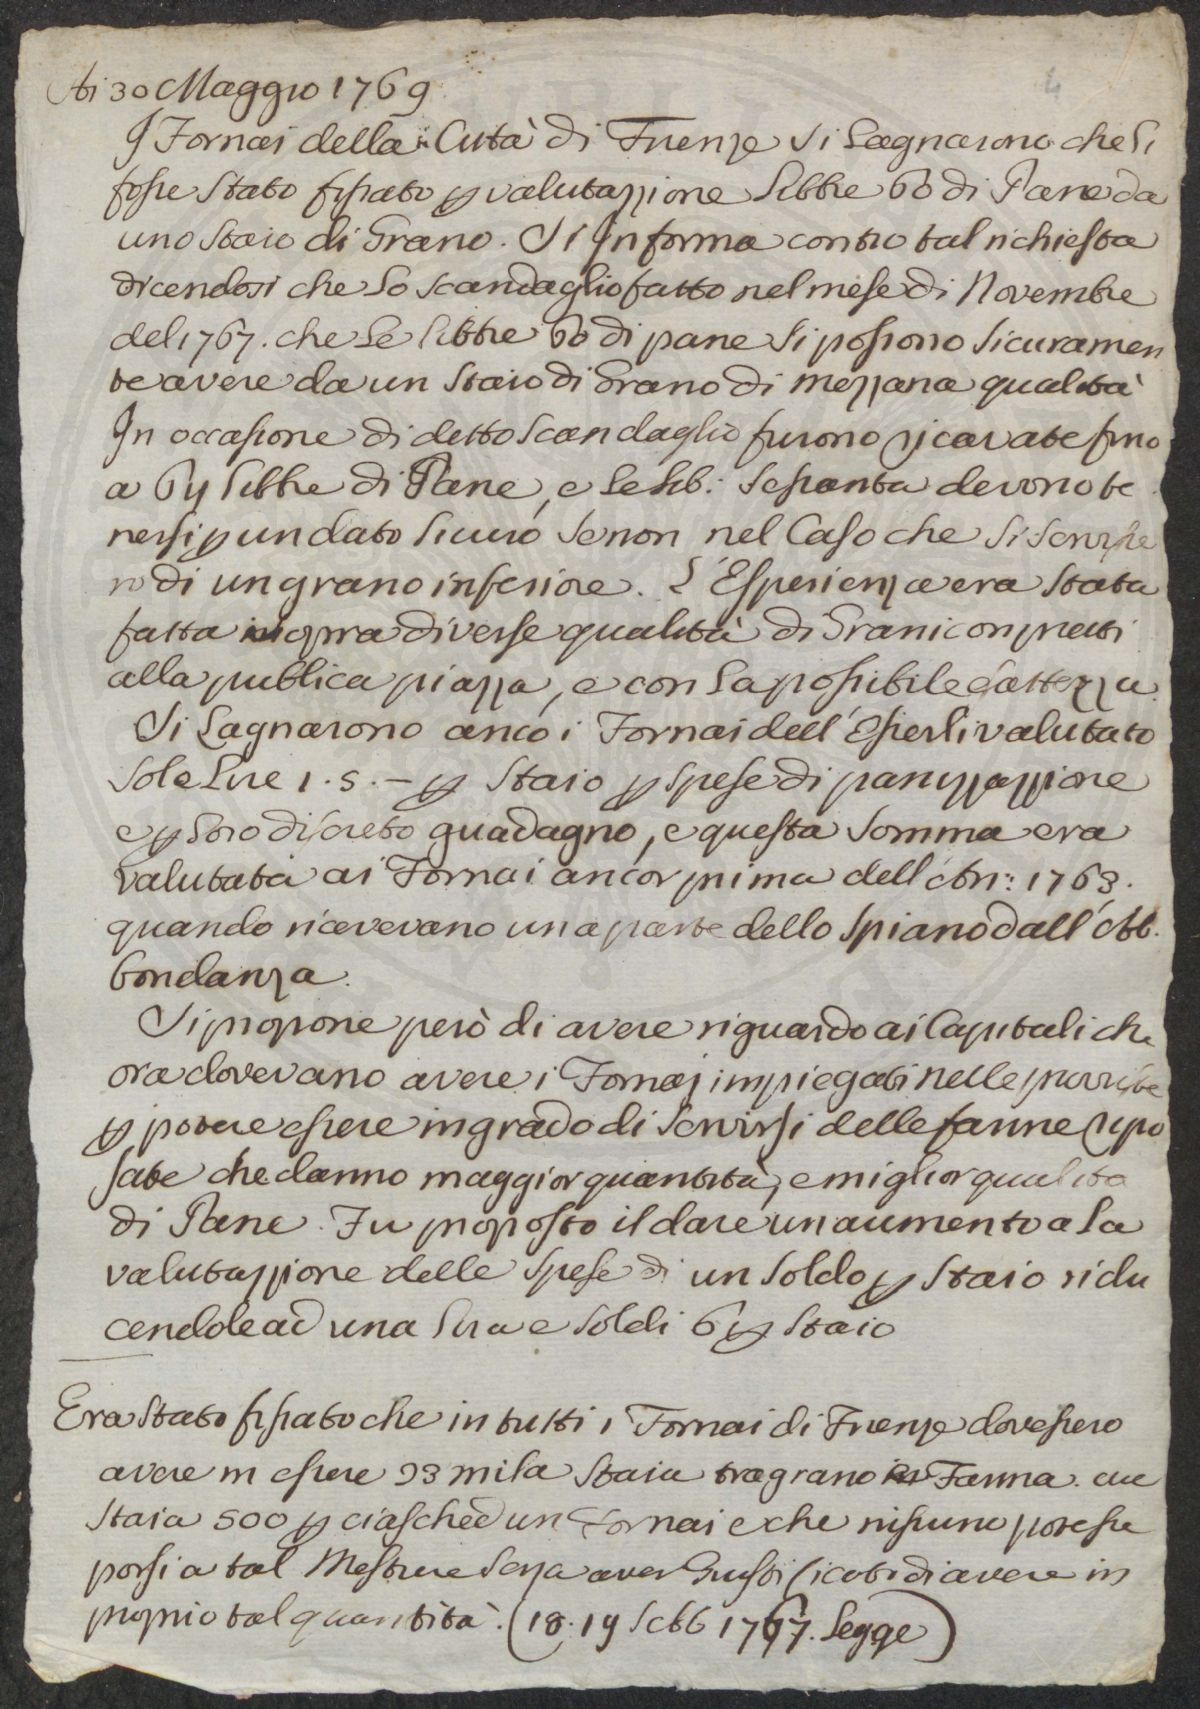 Ai 30 Maggio 1769
I Fornai della Città di Firenze si Lagnarono che si
fosse stato fissato p valutazzione Libbre 60 di Pane da
uno staio di Grano. Si Informa contro tal richiesta
dicendosi che Lo scandaglio fatto nel mese di Novembre
del 1767. che Le Libbre 60 di pane si possono sicuramen
te avere da un staio di Grano di mezzana qualità
In occasione di detto scandaglio furono ricavate fino
a 64 Libbre di Pane, e Le Lib: sessanta devono te
nersi p un dato sicuro se non nel Caso che si servisse
ro di un grano inferiore. L'Esperienza era stata
fatta sopra diverse qualità di Grani con prezzi
alla publica piazza, e con La possibile esattezza.
Si Lagnarono anco i Fornai dell'Esserli valutato
sole Lire 1. 5. - p Staio p spese di panizzazzione
e p Loro discreto guadagno, e questa somma era
valutata ai Fornai ancor prima dell'An: 1763.
quando ricevevano una parte dello spiano dall'Ab.
bondanza.
Si propone però di avere riguardo ai Capitali che
ora dovevano avere i Fornaj impiegati nelle provviste
p potere essere in grado di servirsi delle farine ripo
sate che danno maggior quantità, e miglior qualità
di Pane. Fu proposto il dare un aumento a La
valutazzione delle spese di un soldo p staio ridu
cendole ad una Lira e soldi 6 p staio
Era stato fissato che in tutti i Fornai di Firenze dovessero
avere in essere 23 mila staia tra grano Farina. cue
staia 500 p ciasched un Fornai e che nissuno potesse
porsi a tal Mestiere senza aver Giustificato di avere in
proprio tal quantità. (18. 19 Settb 1767. Legge)